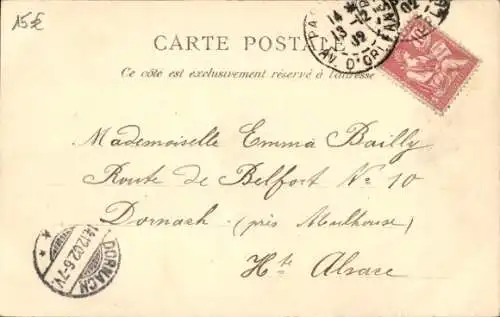 15€
CARTE POSTALE
Ce côté est exclusivement réservé à l'adresse
PA
14
13 -12
02
AV. D'ORLEANS
02
Mademoiselle Emma Bailly
Route de Belfort No 10
Dornach (près Mulhouse)
Hte Alsace
14.12.02.6-7V.
DORNACH